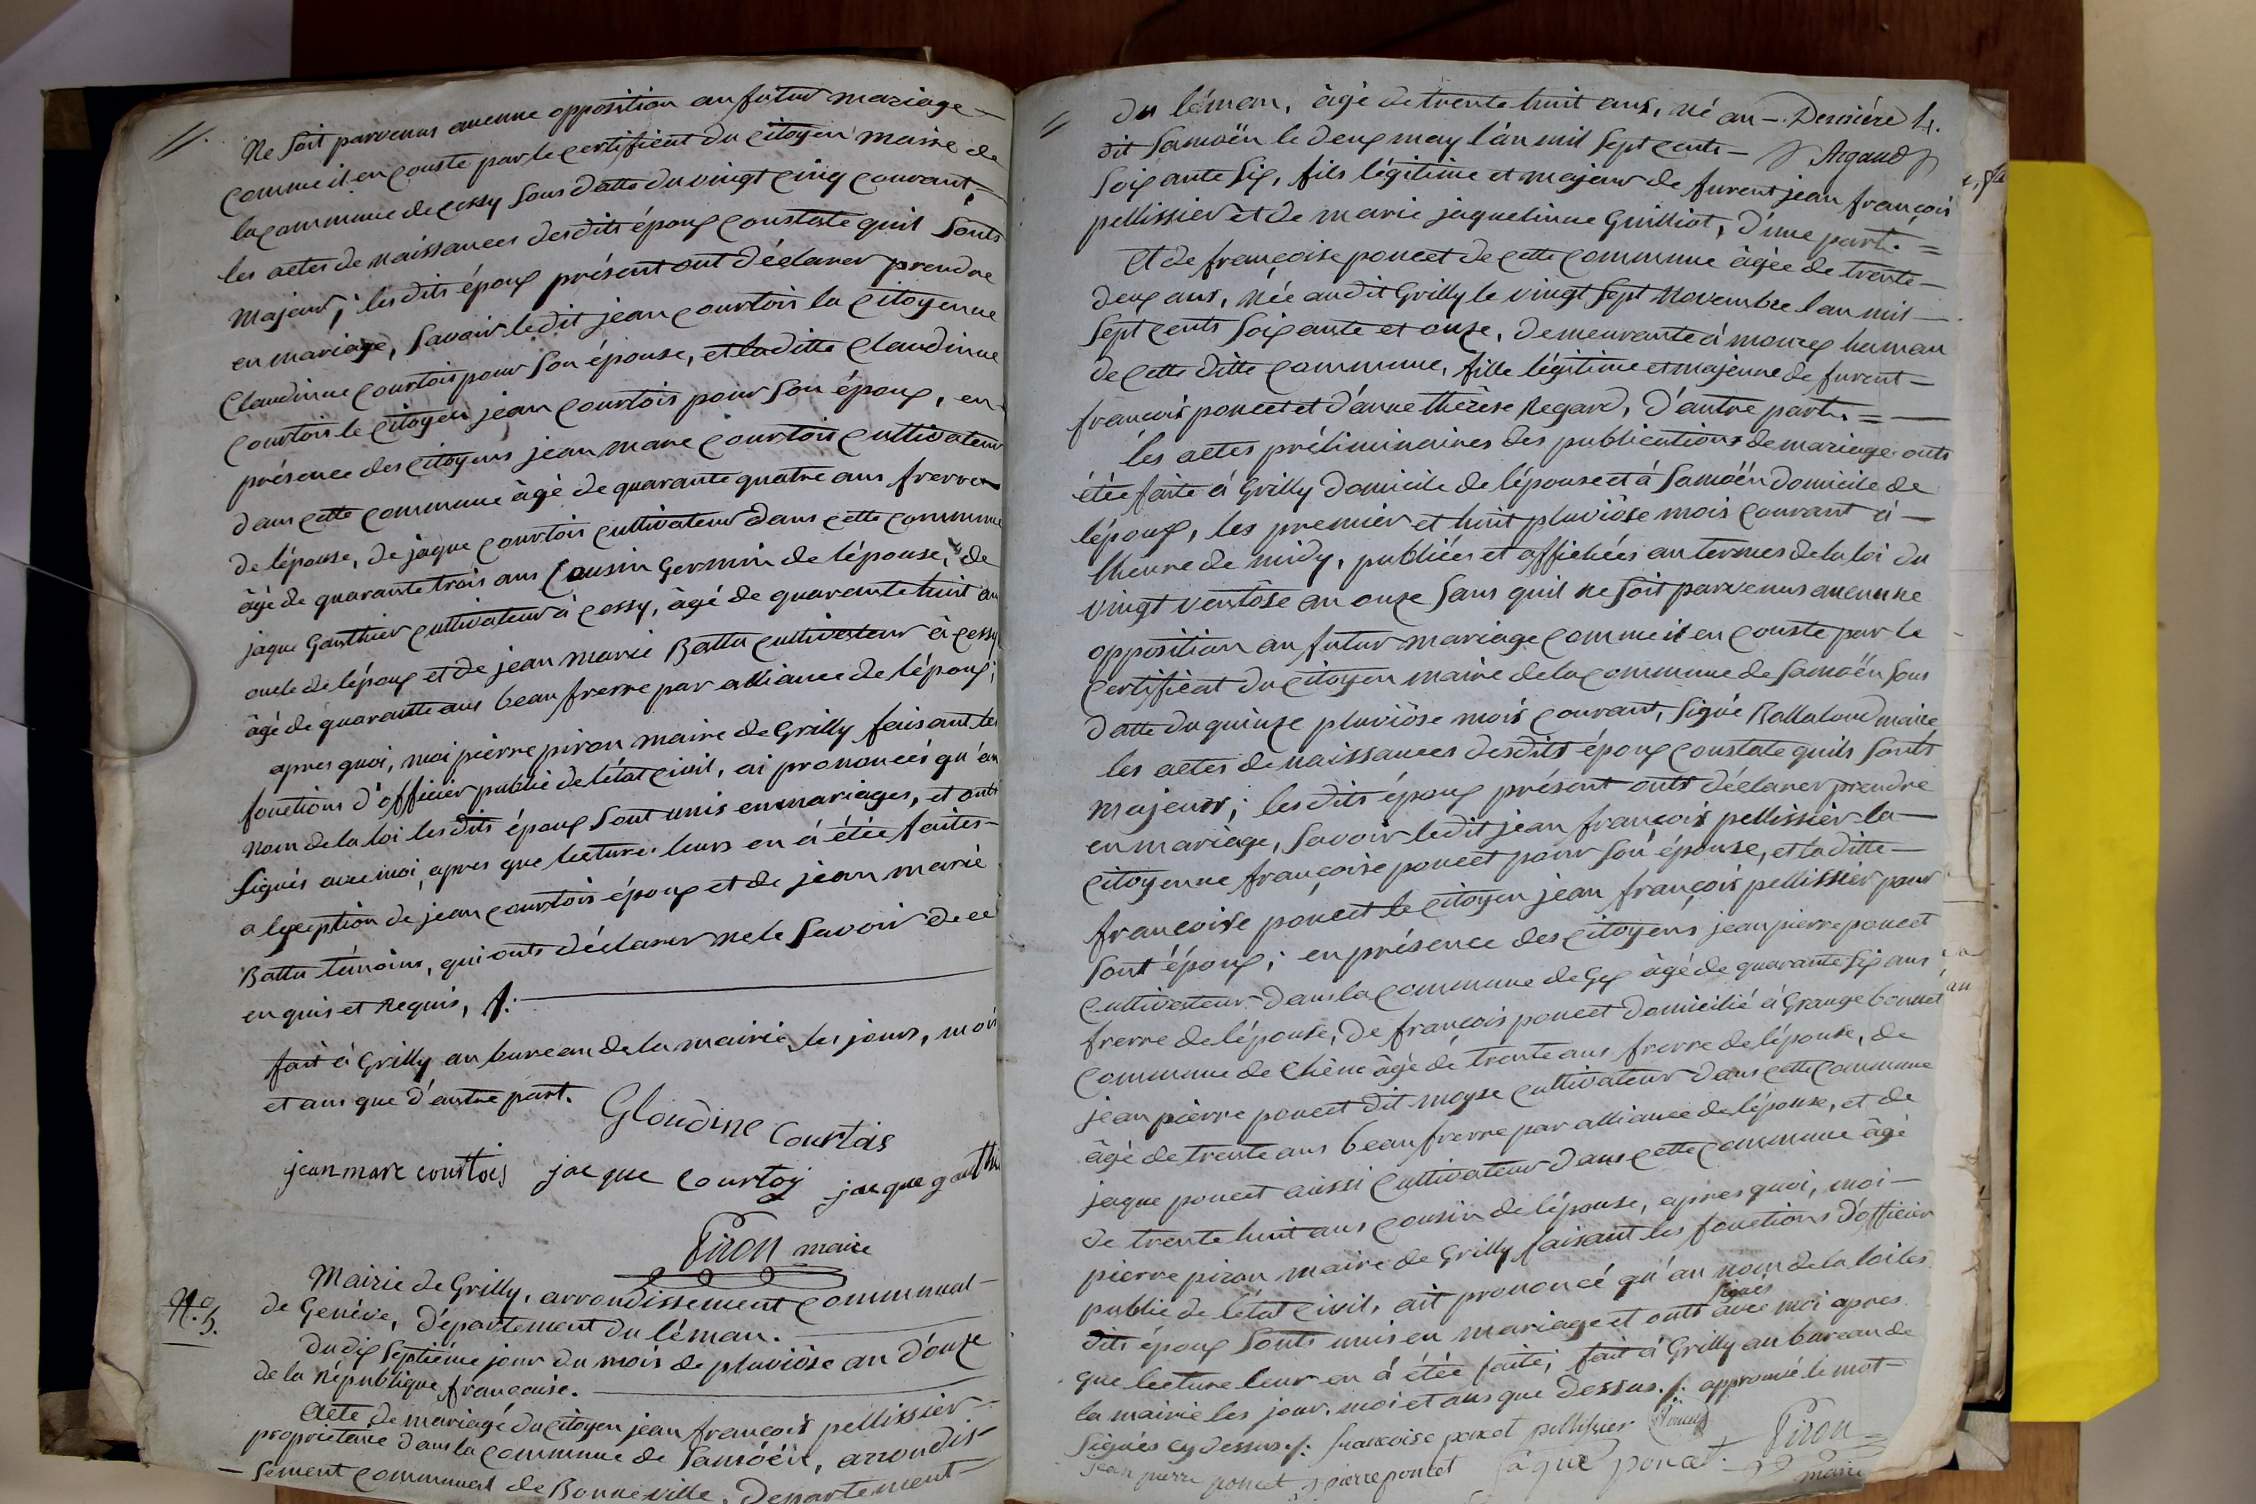 Ne soit parvenus aucunne opposition au futur mariage
comme il en conste par le certificat du citoyen maire de
la commune de cessy sous datte du vingt cinq courant,
les actes de naissances desdits époux constate quil sonts
majeur; lesdits époux présent ont déclarer prendre
en mariage, savoir ledit jean courtois la citoyenne
Claudinne Courtois pour son épouse, et laditte Claudinne
courtois le citoyen jean courtois pour son époux, en
présence des citoyens jean marc courtois cultivateur
dans cette commune âgé de quarante quatre ans frerre
de lépouse, de jaque courtois cultivateur dans cette commune
âgé de quarante trois ans Cousin Germin de lépouse, de
jaque Gauthier cultivateur à cessy, âgé de quarante huit an
oncle de lépoux et de jean marie Battu cultivateur à cessy
âgé de quarante ans beau frerre par alliance de lépoux;
apres quoi, moi pierre piron maire de Grilly faisant les
fonctions d'officier public de létat civil, ai prononcés qu'au
nom de la loi lesdits époux sont unis en mariages, et onts
signés avec moi, apres que lecture leurs en à étée faites
a lexception de jean courtois époux et de jean marie
Battu témoins, qui onts déclarer ne le savoir de ce
enquis et Requis, /:
fait à Grilly au bureau de la mairie les jours, mois
et ans que d'autre part.
Gloudine Courtois
jean marc courtois jacque Courtoy jacque gauthi
Piron maire
N.° 5.
Mairie de Grilly, arrondissement communal
de Genève, département du léman.
Du dix septième jour du mois de pluviôse an d'ouze
de la République française.
Acte de mariage du citoyen jean françois pellissier
propriétaire dans la commune de Samoën, arrondis
sement communal de Bonneville, Département
du léman, âgé de trente huit ans, né au Dernière 4.
dit Samoën le deux may l'an mil sept cents Argaud
soixante six, fils légitime et majeur de furent jean françois
pellissier et de marie jaquelinne Guilliot, d'une part.
Et de françoise poncet de cette commune âgée de trente
deux ans, née audit Grilly le vingt sept Novembre lan mil
sept cents soixante et onze, demeurante à mourex hameau
de cette ditte commune, fille légitime et majeure de furent
francois poncet et d'anne thérèse Regard, d'autre part.
les actes préliminaires des publications de mariage onts
étée faite à Grilly domicile de lépouse et à Samoën domicile de
lépoux, les premier et huit pluviôse mois courant à
lheure de midy, publiées et affichées au termes de la loi du
vingt ventôse an onze sans quil ne soit parvenus aucunne
opposition au futur mariage comme il en conste par le
certificat du citoyen maire de la commune de Samoën sous
datte du quinze pluviôse mois courant, signé Ballaloud maire
les actes de naissances desdits époux constate quils sonts
majeurs; lesdits époux présent onts déclarer prendre
en mariage, savoir ledit jean françois pellissier la
citoyenne françoise poncet pour son épouse, et laditte
françoise poncet le citoyen jean françois pellissier pour
sont époux; en présence des citoyens jean pierre poncet
cultivateur dans la commune de Gex âgé de quarante six ans
frerre de lépouse, de françois poncet domicilié à Grange bonnet
commune de Chêne âgé de trente ans frerre de lépouse, de
jean pierre poncet dit moyse cultivateur dans cette commune
âgé de trente ans beau frerre par alliance de lépouse, et de
jaque poncet aussi cultivateur dans cette commune âgé
de trente huit ans cousin de lépouse, apres quoi, moi
pierre piron maire de Grilly faisant les fonctions d'officier
public de létat civil, ait prononcé qu'au nom de la loi les
dits époux sonts unis en mariage et onts signés avec moi apres
que lecture leur en à étée faite; fait à Grilly au bureau de
la mairie les jour, moi et ans que dessus. /: approuvé le mot
signés cy dessus. /: francoise poncet pellisier
Piron
jean pierre poncet pierre poncet jaque poncet
maire